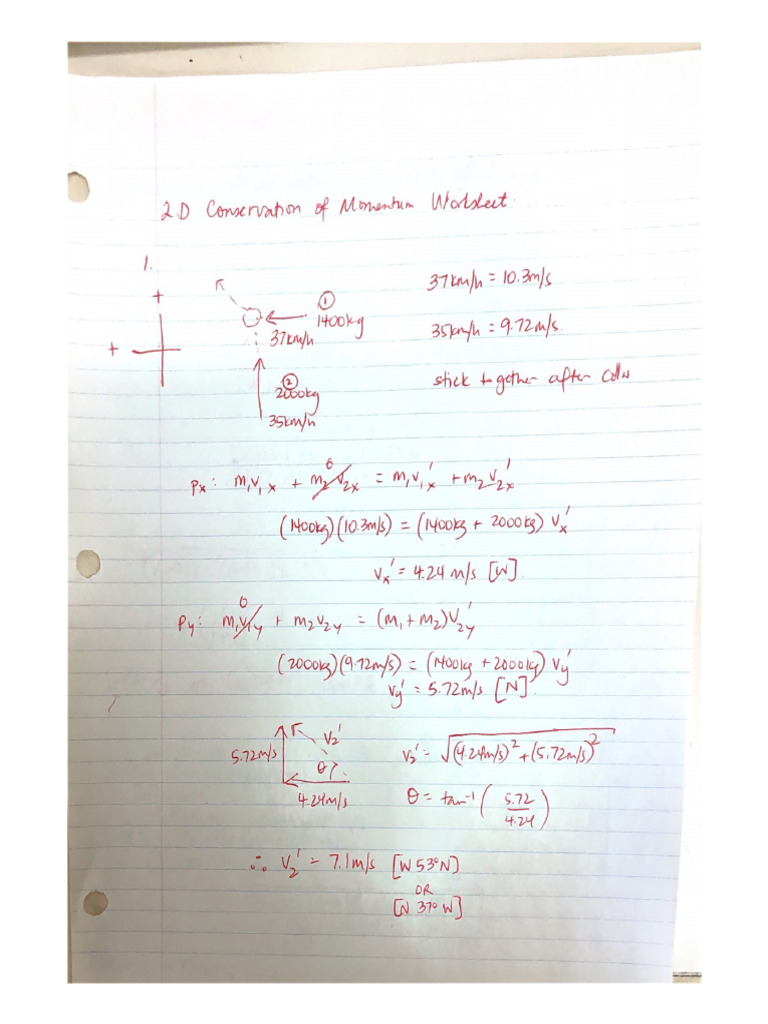 2D Conservation of Momentum Worksheet.
1.
+
+
①
1400kg
37km/h
②
2000kg
35km/h
37km/h = 10.3m/s
35km/h = 9.72m/s.
stick together after
Px: m₁v₁x + m₂v₂x = m₁v₁x' + m₂v₂x'
0
(1400kg)(10.3m/s) = (1400kg + 2000kg) Vx'
Vx' = 4.24 m/s [W]
0
Py: m₁v₁y + m₂v₂y = (m₁+m₂)V₂y'
(2000kg)(9.72m/s) = (1400kg + 2000kg) Vy'
Vy' = 5.72m/s [N].
5.72m/s
V₂'
θ
4.24m/s
V₂' = √(4.24m/s)² + (5.72m/s)²
θ = tan⁻¹ (5.72/4.24)
∴ V₂' = 7.1m/s [W53°N]
OR
[N 37° W]